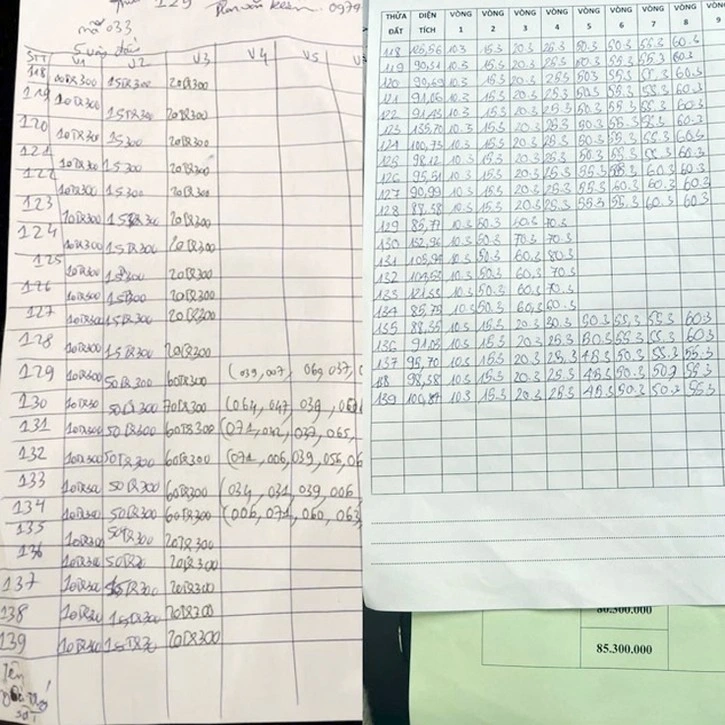 129
0979
mã 033
5 vòng đấu
STT V1 V2 V3 V4 V5
118 10TR300 15TR300 20TR300
119 10TR300 15TR300 20TR300
120 10TR300 15 300 20TR300
121 10TR300 15 300 20TR300
122 10TR300 15 300 20TR300
123 10TR300 15TR300 20TR300
124 10TR300 15TR300 20TR300
125 10TR300 15TR300 20TR300
126 10TR300 15TR300 20TR300
127 10TR300 15TR300 20TR300
128 15TR300 20TR300
129 50TR300 60TR300 (039, 007, 069 037,
130 50TR300 70TR300 (064, 047, 039,
131 10TR300 50TR300 60TR300 (071, 042, 037, 065,
132 10TR300 50TR300 60TR300 (071, 006, 039, 056,
133 10TR300 50TR300 60TR300 (034, 031, 039, 006
134 10TR300 50TR300 60TR300 (006, 071, 060, 063
135 10TR300 20TR300
136 20TR300
137 10TR300 15TR300 20TR300
138 15TR300 20TR300
139 15TR30 20TR300
Tên
THỬA ĐẤT DIỆN TÍCH VÒNG 1 VÒNG 2 VÒNG 3 VÒNG 4 VÒNG 5 VÒNG 6 VÒNG 7 VÒNG 8 VÒNG 9
118 10.3 15.3 20.3 25.3 50.3 50.3 55.3 60.3
119 90,51 10.3 15.3 20.3 25.3 50.3 55.3 55.3 60.3
120 90,69 10.3 15.3 20.3 25.3 50.3 55.3 55.3 60.3
121 91,06 10.3 15.3 20.3 25.3 50.3 55.3 55.3 60.3
122 91,43 10.3 15.3 20.3 25.3 50.3 55.3 55.3 60.3
123 155,70 10.3 15.3 20.3 25.3 50.3 55.3 55.3 60.3
124 100,73 10.3 15.3 20.3 25.3 50.3 55.3 55.3 60.3
125 98,12 10.3 15.3 20.3 25.3 50.3 55.3 55.3 60.3
126 95,51 10.3 15.3 20.3 25.3 55.3 55.3 60.3 60.3
127 90,99 10.3 15.3 20.3 25.3 55.3 60.3 60.3 60.3
128 88,38 10.3 15.3 20.3 25.3 55.3 55.3 60.3 60.3
129 85,77 10.3 50.3 50.3 70.3
130 152,96 10.3 50.3 70.3 70.3
131 10.3 50.3 60.3 80.3
132 10.3 50.3 60.3 70.3
133 10.3 50.3 60.3 70.3
134 85,75 10.3 50.3 60.3 60.3
135 88,35 10.3 15.3 20.3 30.3 50.3 55.3 55.3 60.3
136 91,03 10.3 15.3 20.3 25.3 50.3 55.3 55.3 60.3
137 95,70 10.3 15.3 20.3 25.3 45.3 50.3 55.3 55.3
138 98,38 10.3 15.3 20.3 25.3 45.3 50.3 50.3 55.3
139 100,87 10.3 15.3 20.3 25.3 45.3 50.3 50.3 55.3
80.300.000
85.300.000